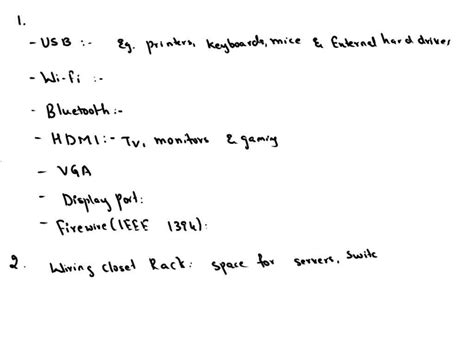 1.
- USB :- Eg. printers, keyboards, mice & External hard drives
- Wi-fi :-
- Bluetooth :-
- HDMI :- Tv, monitors & gaming
- VGA
- Display port :
- Firewire (IEEE 1394) :
2. Wiring closet Rack : space for servers, Switc